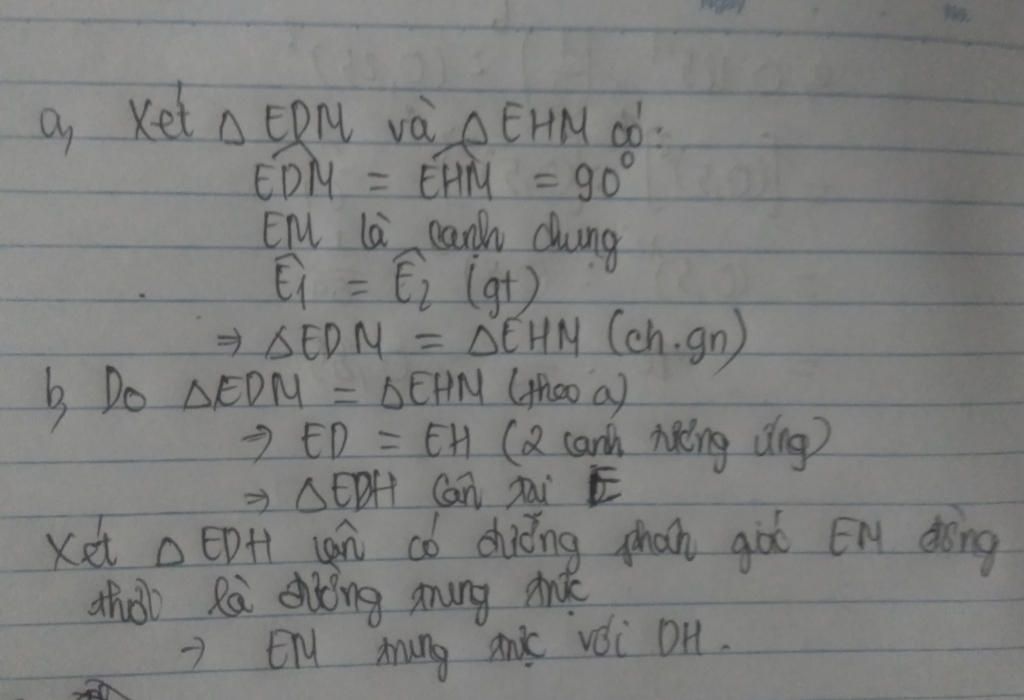 a, Xét Δ EDM và Δ EHM có:
EDM = EHM = 90°
EM là cạnh chung
Ê1 = Ê2 (gt)
⇒ ΔEDM = ΔEHM (ch.gn)
b, Do ΔEDM = ΔEHM (theo a)
⇒ ED = EH (2 cạnh tương ứng)
⇒ ΔEDH cân tại E
Xét Δ EDH cân có đường phân giác EM đồng
thời là đường trung trực
→ EM trung trực với DH.